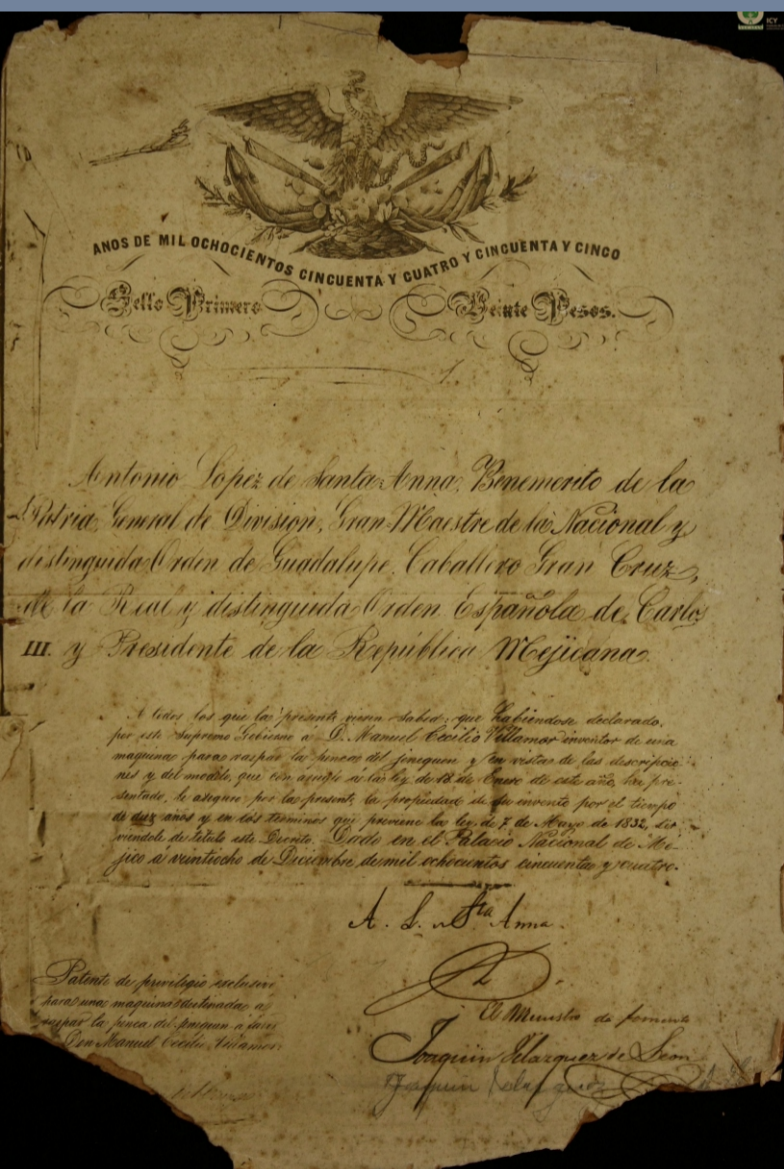 ICY
AÑOS DE MIL OCHOCIENTOS CINCUENTA Y CUATRO Y CINCUENTA Y CINCO
Sello Primero Veinte Pesos.
Antonio Lopez de Santa Anna, Benemerito de la
Patria, General de Division, Gran Maestre de la Nacional y
distinguida Orden de Guadalupe, Caballero Gran Cruz,
de la Real y distinguida Orden Española de Carlos
III. y Presidente de la República Mejicana.
A todos los que la presente vieren sabed: que habiendose declarado,
por este Supremo Gobierno á D. Manuel Cecilio Villamor inventor de una
maquina para raspar la penca del jeniquen y en vista de las descripcio-
nes y del modelo, que con arreglo á la ley de 18 de Enero de este año, ha pre-
sentado, le aseguro por la presente la propiedad de su invento por el tiempo
de diez años y en los terminos que previene la ley de 7 de Mayo de 1832, sir-
viendole de titulo este Decreto. Dado en el Palacio Nacional de Mé-
jico á veintiocho de Diciembre de mil ochocientos cincuenta y cuatro.
A. L. de Sta Anna.
Patente de privilegio exclusivo
para una maquina destinada á
raspar la penca del
Don Manuel Cecilio Villamor
El Ministro de fomento
Joaquin Velazquez de Leon
Joaquin Velazquez